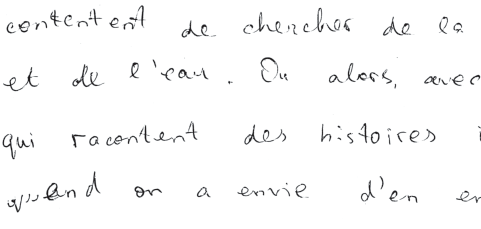 contentent de chercher de la
et de l'eau. Ou alors, avec
qui racontent des histoires i
quand on a envie d'en en